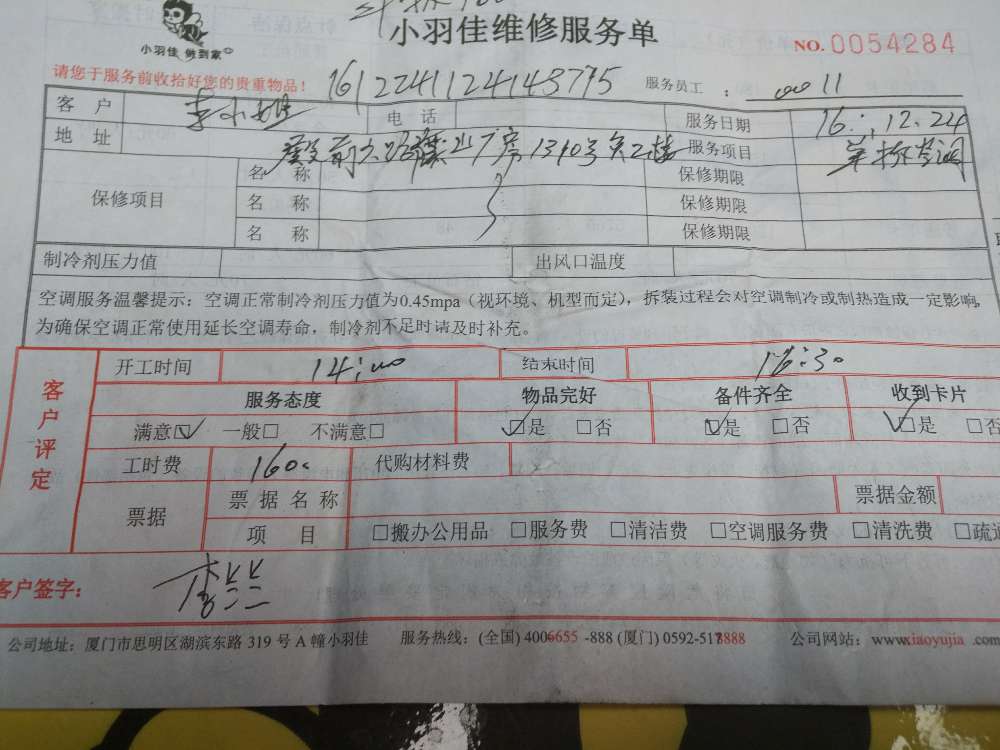 小羽佳维修服务单
小羽佳 做到家
NO.0054284
请您于服务前收拾好您的贵重物品！ 161224112414843775 服务员工： 0011
客户 李小姐 电话 服务日期 16.12.24
地址 殿前六路 厂房1310号 楼 服务项目 单拆空调
保修项目 名称 保修期限
名称 保修期限
名称 保修期限
制冷剂压力值 出风口温度
空调服务温馨提示：空调正常制冷剂压力值为0.45mpa（视环境、机型而定），拆装过程会对空调制冷或制热造成一定影响，
为确保空调正常使用延长空调寿命，制冷剂不足时请及时补充。
客户评定
开工时间 14:00 结束时间 16:30
服务态度 物品完好 备件齐全 收到卡片
满意☑ 一般□ 不满意□ ☑是 □否 ☑是 □否 ☑是 □否
工时费 1600 代购材料费
票据 票据名称 票据金额
项目 □搬办公用品 □服务费 □清洁费 □空调服务费 □清洗费 □疏通
客户签字： 李兰兰
公司地址：厦门市思明区湖滨东路 319 号 A 幢小羽佳 服务热线：(全国) 4006655-888 (厦门) 0592-5178888 公司网站：www.xiaoyujia.com